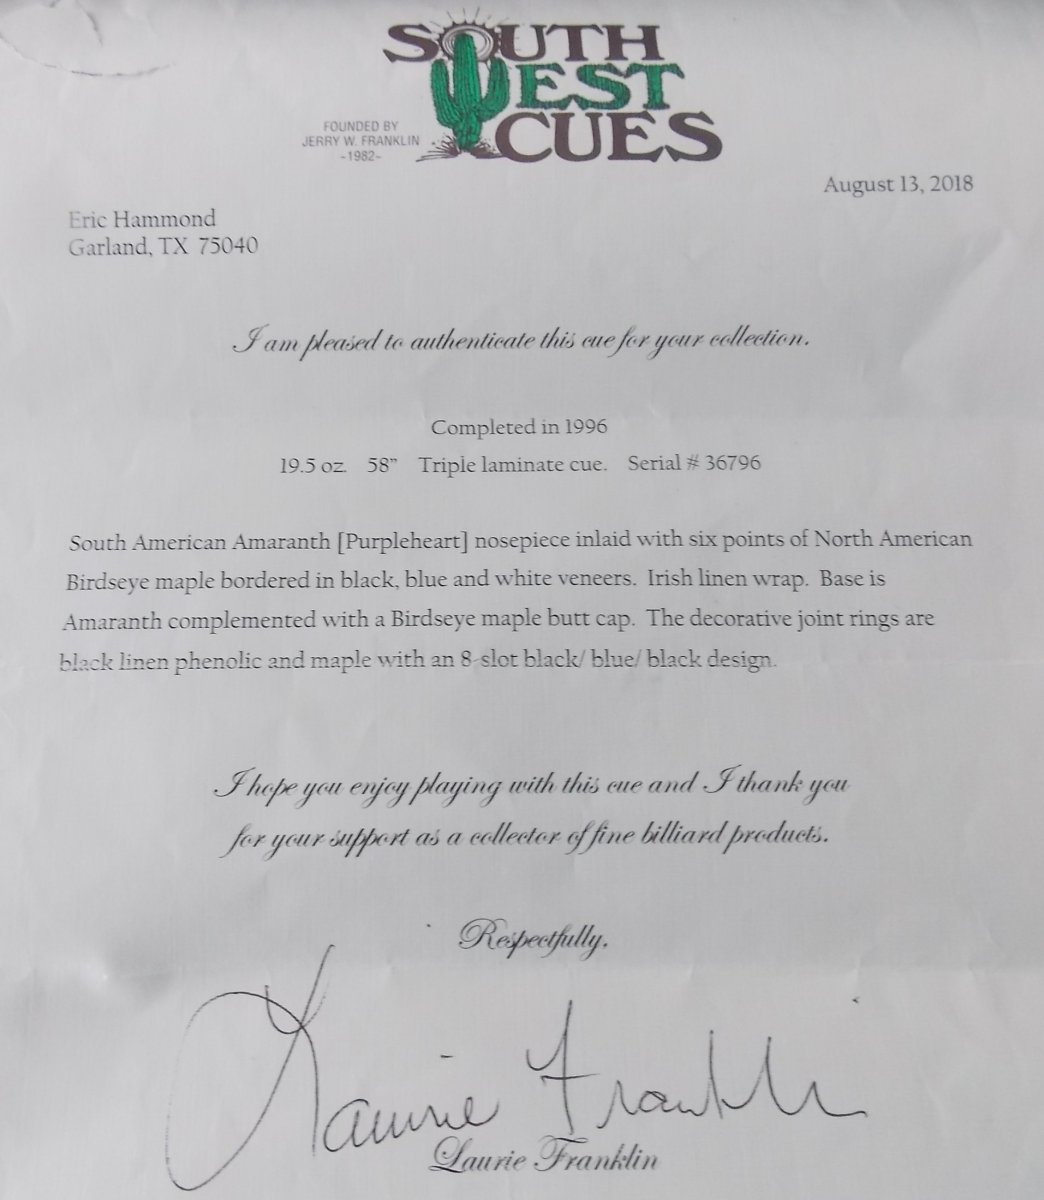 SOUTH
WEST
CUES
FOUNDED BY
JERRY W. FRANKLIN
-1982-
August 13, 2018
Eric Hammond
Garland, TX 75040
I am pleased to authenticate this cue for your collection.
Completed in 1996
19.5 oz. 58" Triple laminate cue. Serial # 36796
South American Amaranth [Purpleheart] nosepiece inlaid with six points of North American
Birdseye maple bordered in black, blue and white veneers. Irish linen wrap. Base is
Amaranth complemented with a Birdseye maple butt cap. The decorative joint rings are
black linen phenolic and maple with an 8-slot black/ blue/ black design.
I hope you enjoy playing with this cue and I thank you
for your support as a collector of fine billiard products.
Respectfully,
Laurie Franklin
Laurie Franklin